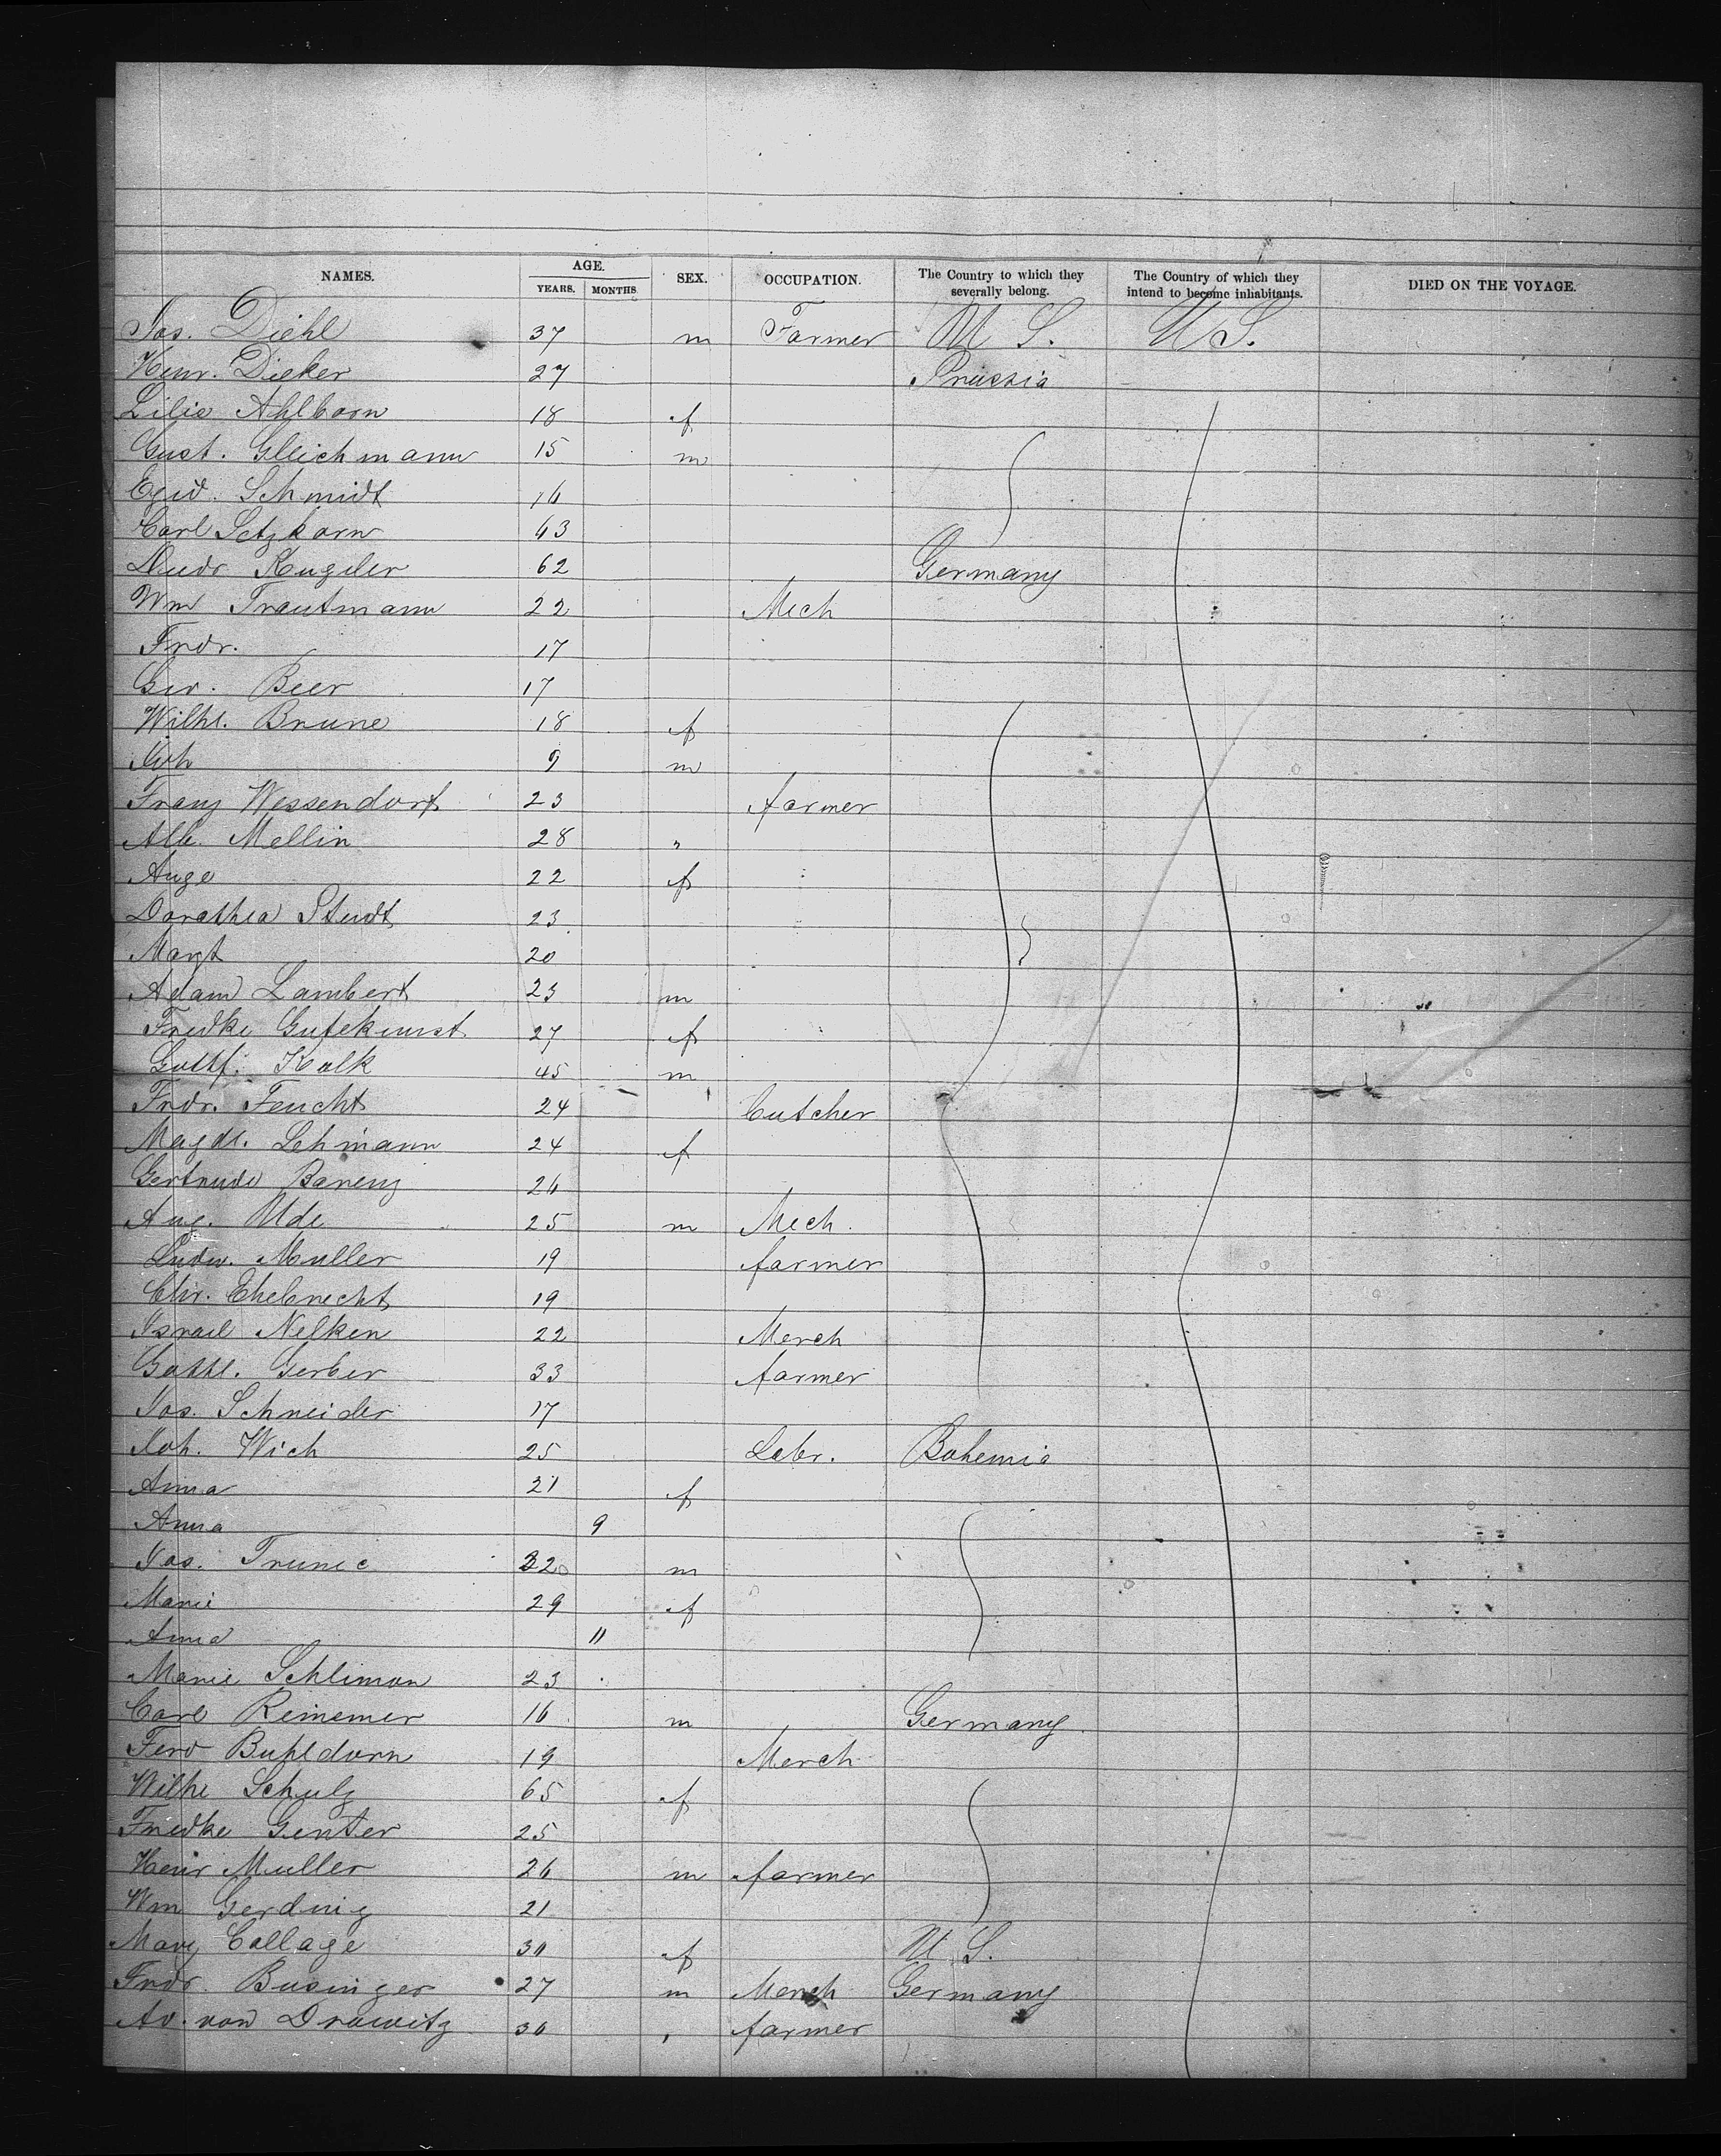 NAMES. AGE. YEARS. MONTHS. SEX. OCCUPATION. The Country to which they severally belong. The Country of which they intend to become inhabitants. DIED ON THE VOYAGE.
Jos. Diehl 37 m Farmer U S. U S.
Heinr. Dieker 27 Prussia
Lilie Ahlborn 18 f
Gust. Gleichmann 15 m
Egid. Schmidt 16
Carl Setzkorn 63
Kugeler 62 Germany
Wm Trautmann 22 Mech
Frdr. 17
Geo. Beer 17
Wilhl. Brune 18 f
Joh 9 m
Franz Wessendorf 23 farmer
Alb. Mellin 28 "
Auge 22 f
Dorathea Studt 23
Margt 20
Adam Lambert 23 m
Fredke Gutekunst 27 f
Gottf. Kolk 45 m
Frdr. Feucht 24 butcher
Magdl. Lehmann 24 f
Gertrude Barenz 26
Aug. Ude 25 m Mech.
Ludw. Muller 19 farmer
Chr. Ehebrecht 19
Israel Nelken 22 Merch
Gottl. Gerber 33 farmer
Jos. Schneider 17
Joh. Wich 25 Labr. Bohemia
Anna 21 f
Anna 9
Jos. Trunec 32 m
Marie 29 f
Anna 11
Marie Schliman 23
Carl Reinemer 16 m Germany
Ferd Buhldorn 19 Merch
Wilhe Schulz 65 f
Friedke Genter 25
Heinr Muller 26 m farmer
Wm Gerding 21
Mary Collage 30 f U S.
Frdr. Businger 27 m Merch Germany
Ad. von Drawitz 36 " farmer